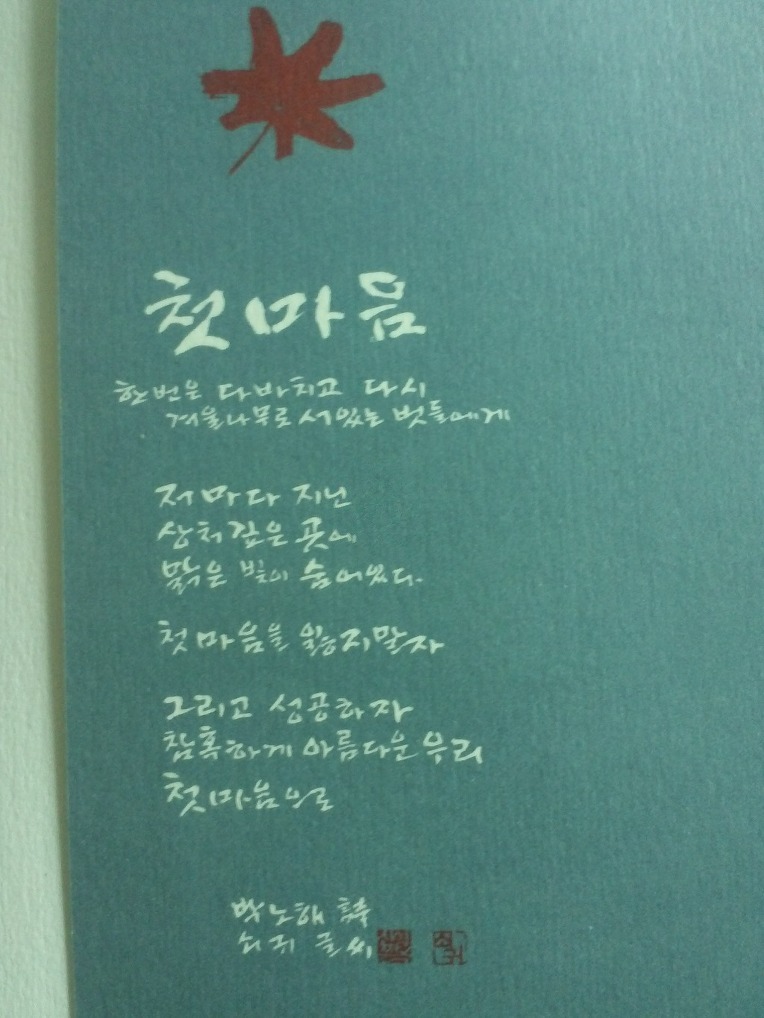 첫마음
한번은 다바치고 다시
겨울나무로 서있는 벗들에게
저마다 지닌
상처깊은 곳에
맑은 빛이 숨어있다.
첫마음을 잃지말자
그리고 성공하자
참혹하게 아름다운 우리
첫마음으로
박노해 詩
쇠귀 글씨